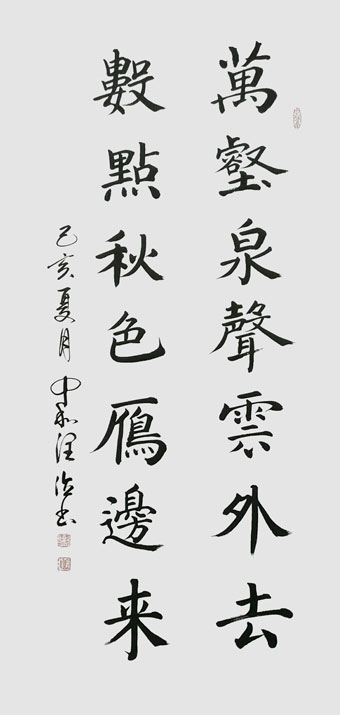 萬壑泉聲雲外去
數點秋色鴈邊来
己亥夏月中和汪治书